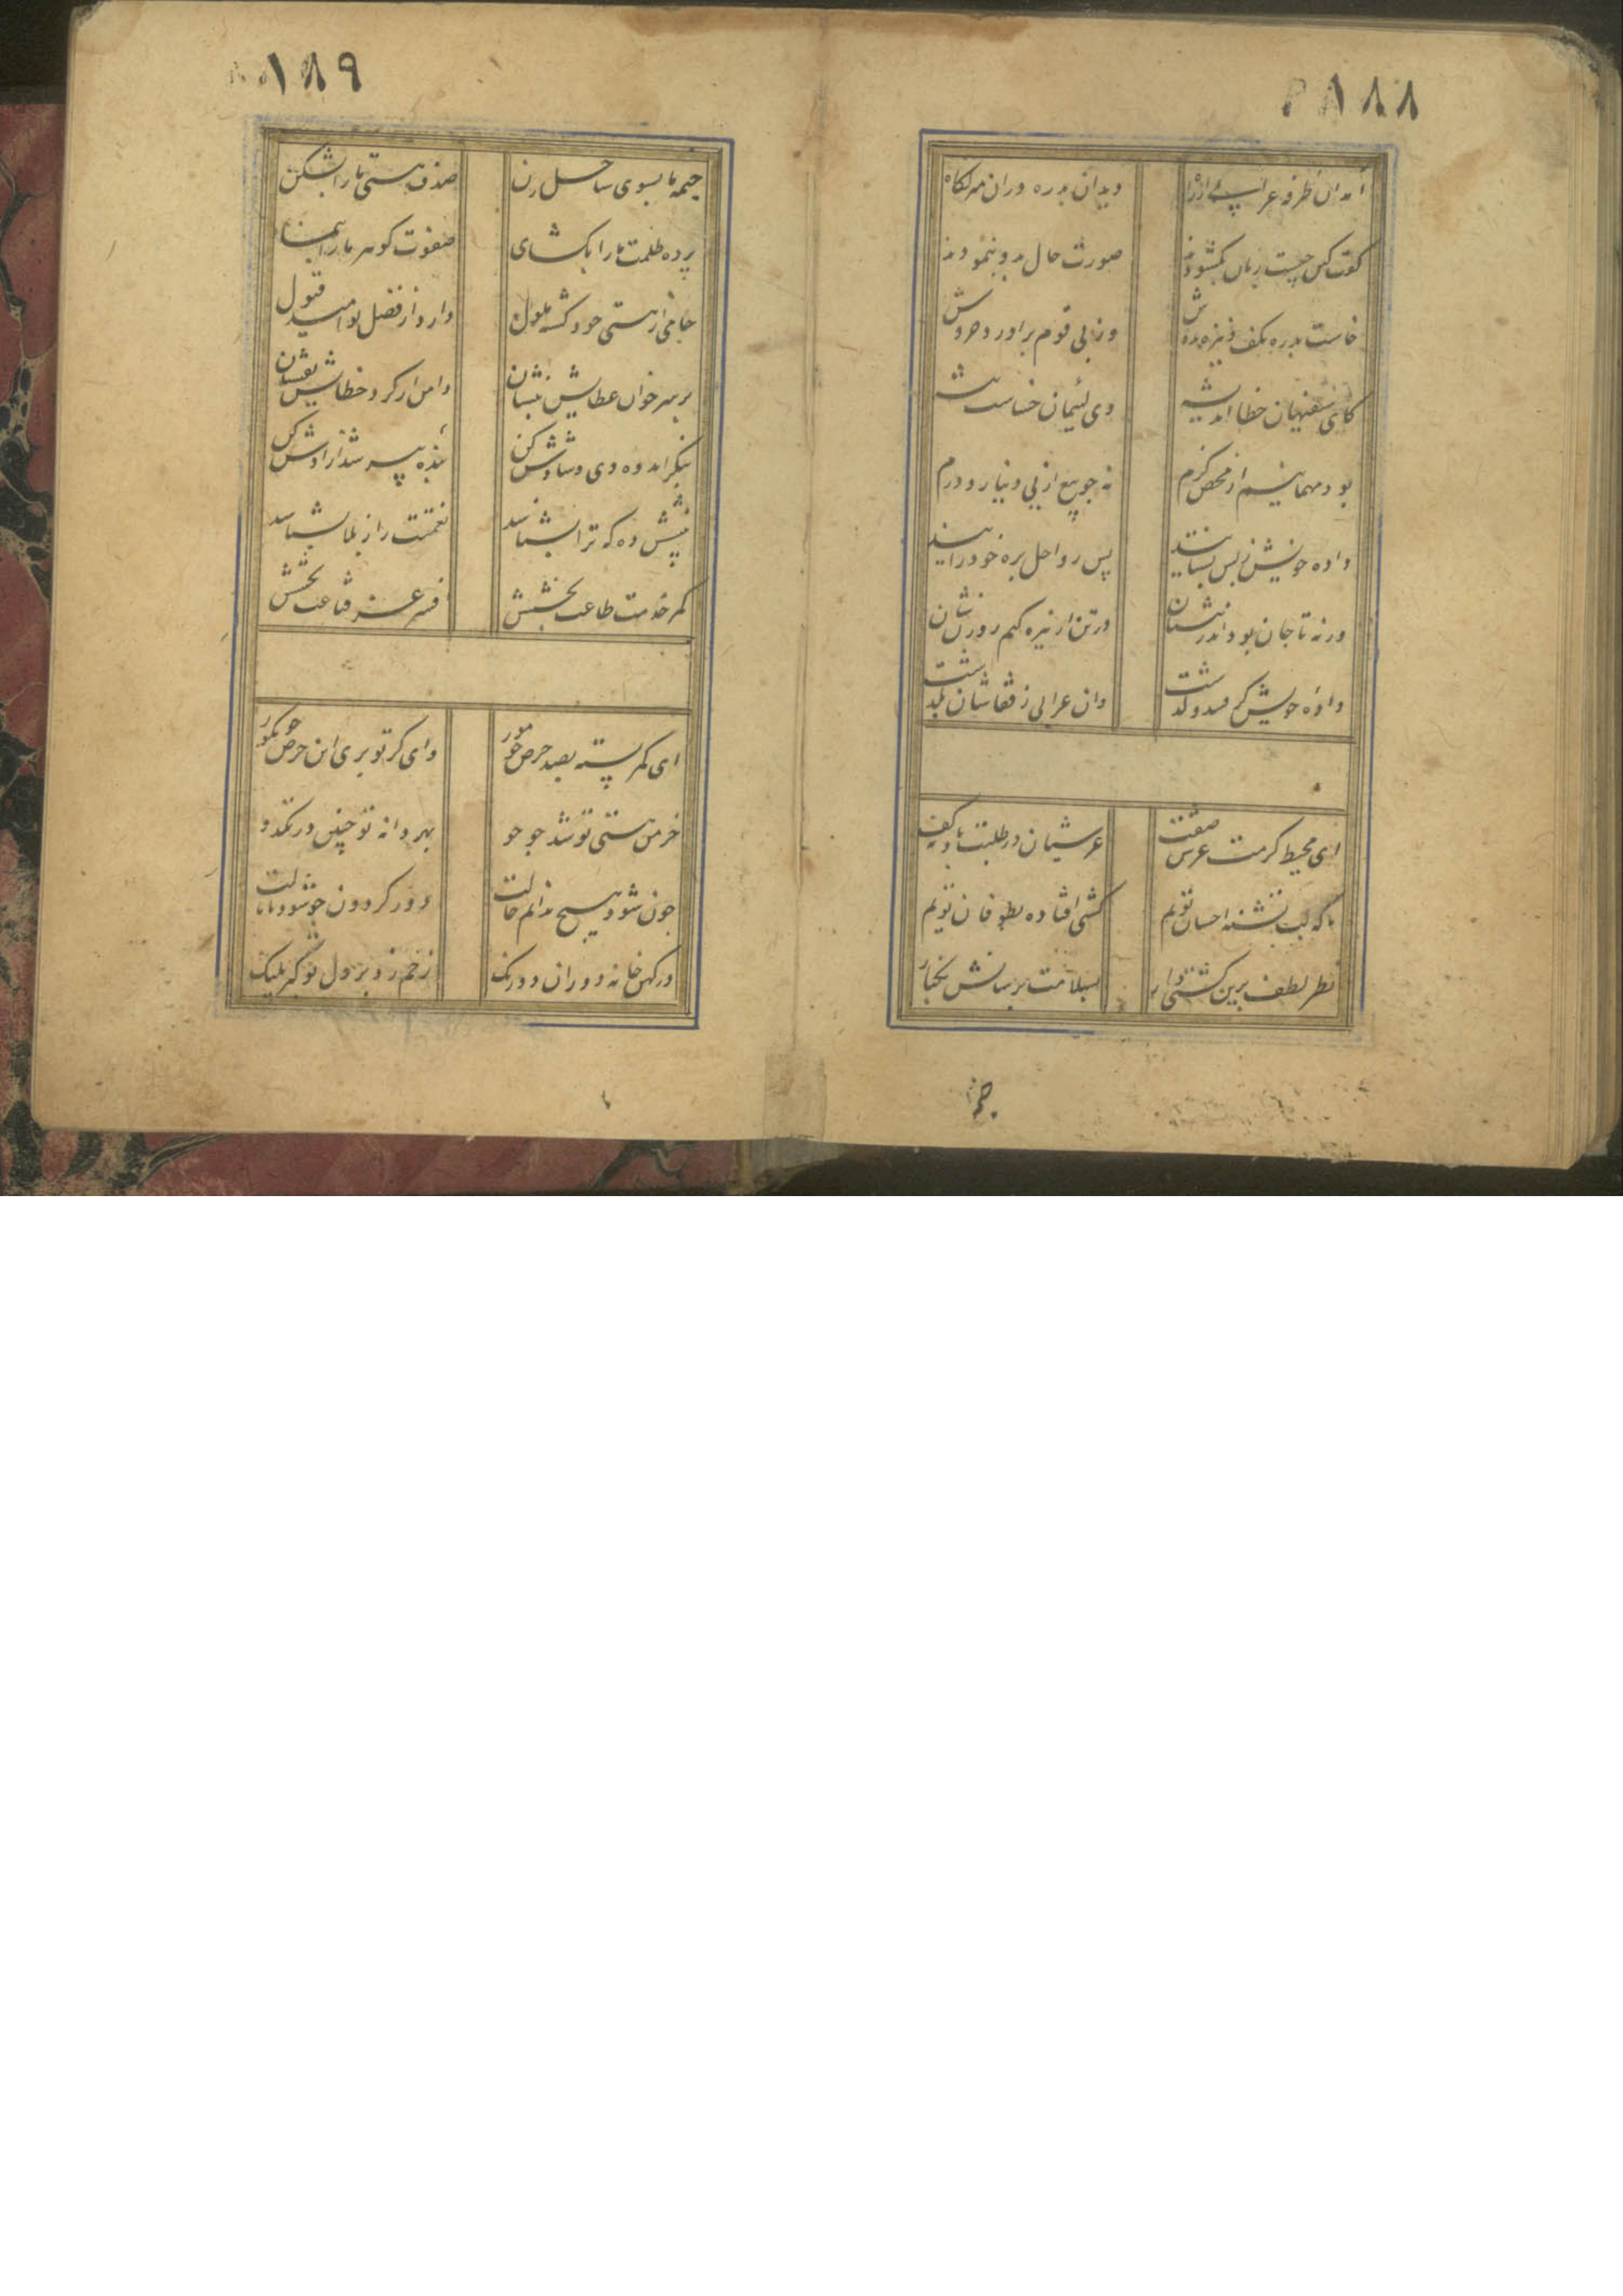 ۱۸۸
آمد آن طرفه عرابی از راه
دید آن بدره در آن منزلگاه
گفت کین چیست زبان بگشودند
صورت حال بدو بنمودند
خاست بدره بکف و نیزه بدوش
وز پی قوم برآورد خروش
کای سفیهان خطا اندیشه
وی لئیمان خساست پیشه
بود مهمانیم از محض کرم
نه چو بیع از پی دینار و درم
داده خویش ز من بستانید
پس رواحل بره خود رانید
ورنه تا جان بود اندر تنتان
در تن از نیزه کنم روزنتان
داده خویش گرفتند و گذشت
وان عرابی ز قفاشان برگشت
ای محیط کرمت عرش صفت
عرشیان در طلبت باد بکف
ما که لب تشنه احسان توئیم
کشتی افتاده بطوفان توئیم
نظر لطف برین کشتی دار
بسلامت برسانش بکنار
خیمه
۱۸۹
خیمه ما بسوی ساحل زن
صدف هستی ما را بشکن
پرده ظلمت ما را بگشای
صفوت گوهر ما را بنمای
جامی از هستی خود گشته ملول
دارد از فضل تو امید قبول
بر سر خوان عطایش بنشان
دامن از گرد خطایش بفشان
بنگر اندوه وی و شادش کن
بنده پیر شد آزادش کن
بینشی ده که ترا بشناسد
نعمتت را ز بلا بشناسد
کمر خدمت طاعت بخشش
افسر عز قناعت بخشش
ای کمر بسته بصد حرص چو مور
وای گر تو بری این حرص بگور
خرمن هستی تو شد جو جو
بهر دانه تو چنین در تک و دو
چون شود هیچ ندانم حالت
دور گردون چو شود پامالت
در کهن خانه دوران دو رنگ
زخم زد بر دل تو گربه پلنگ